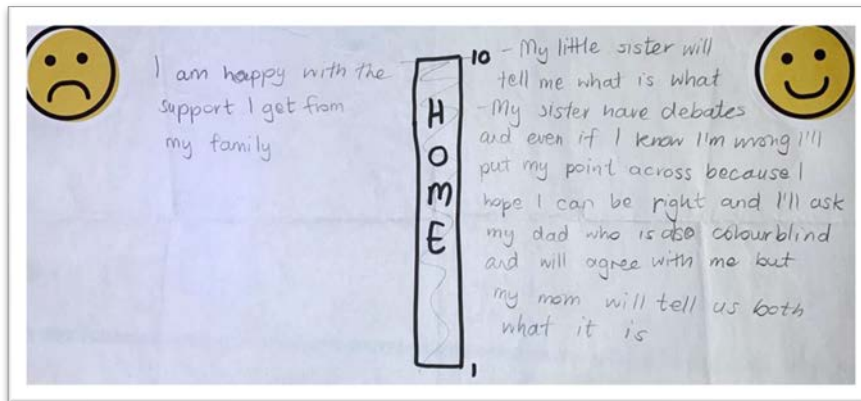 I am happy with the
support I get from
my family
10
HOME
1
- My little sister will
tell me what is what
- My sister have debates
and even if I know I'm wrong I'll
put my point across because I
hope I can be right and I'll ask
my dad who is also colourblind
and will agree with me but
my mom will tell us both
what it is